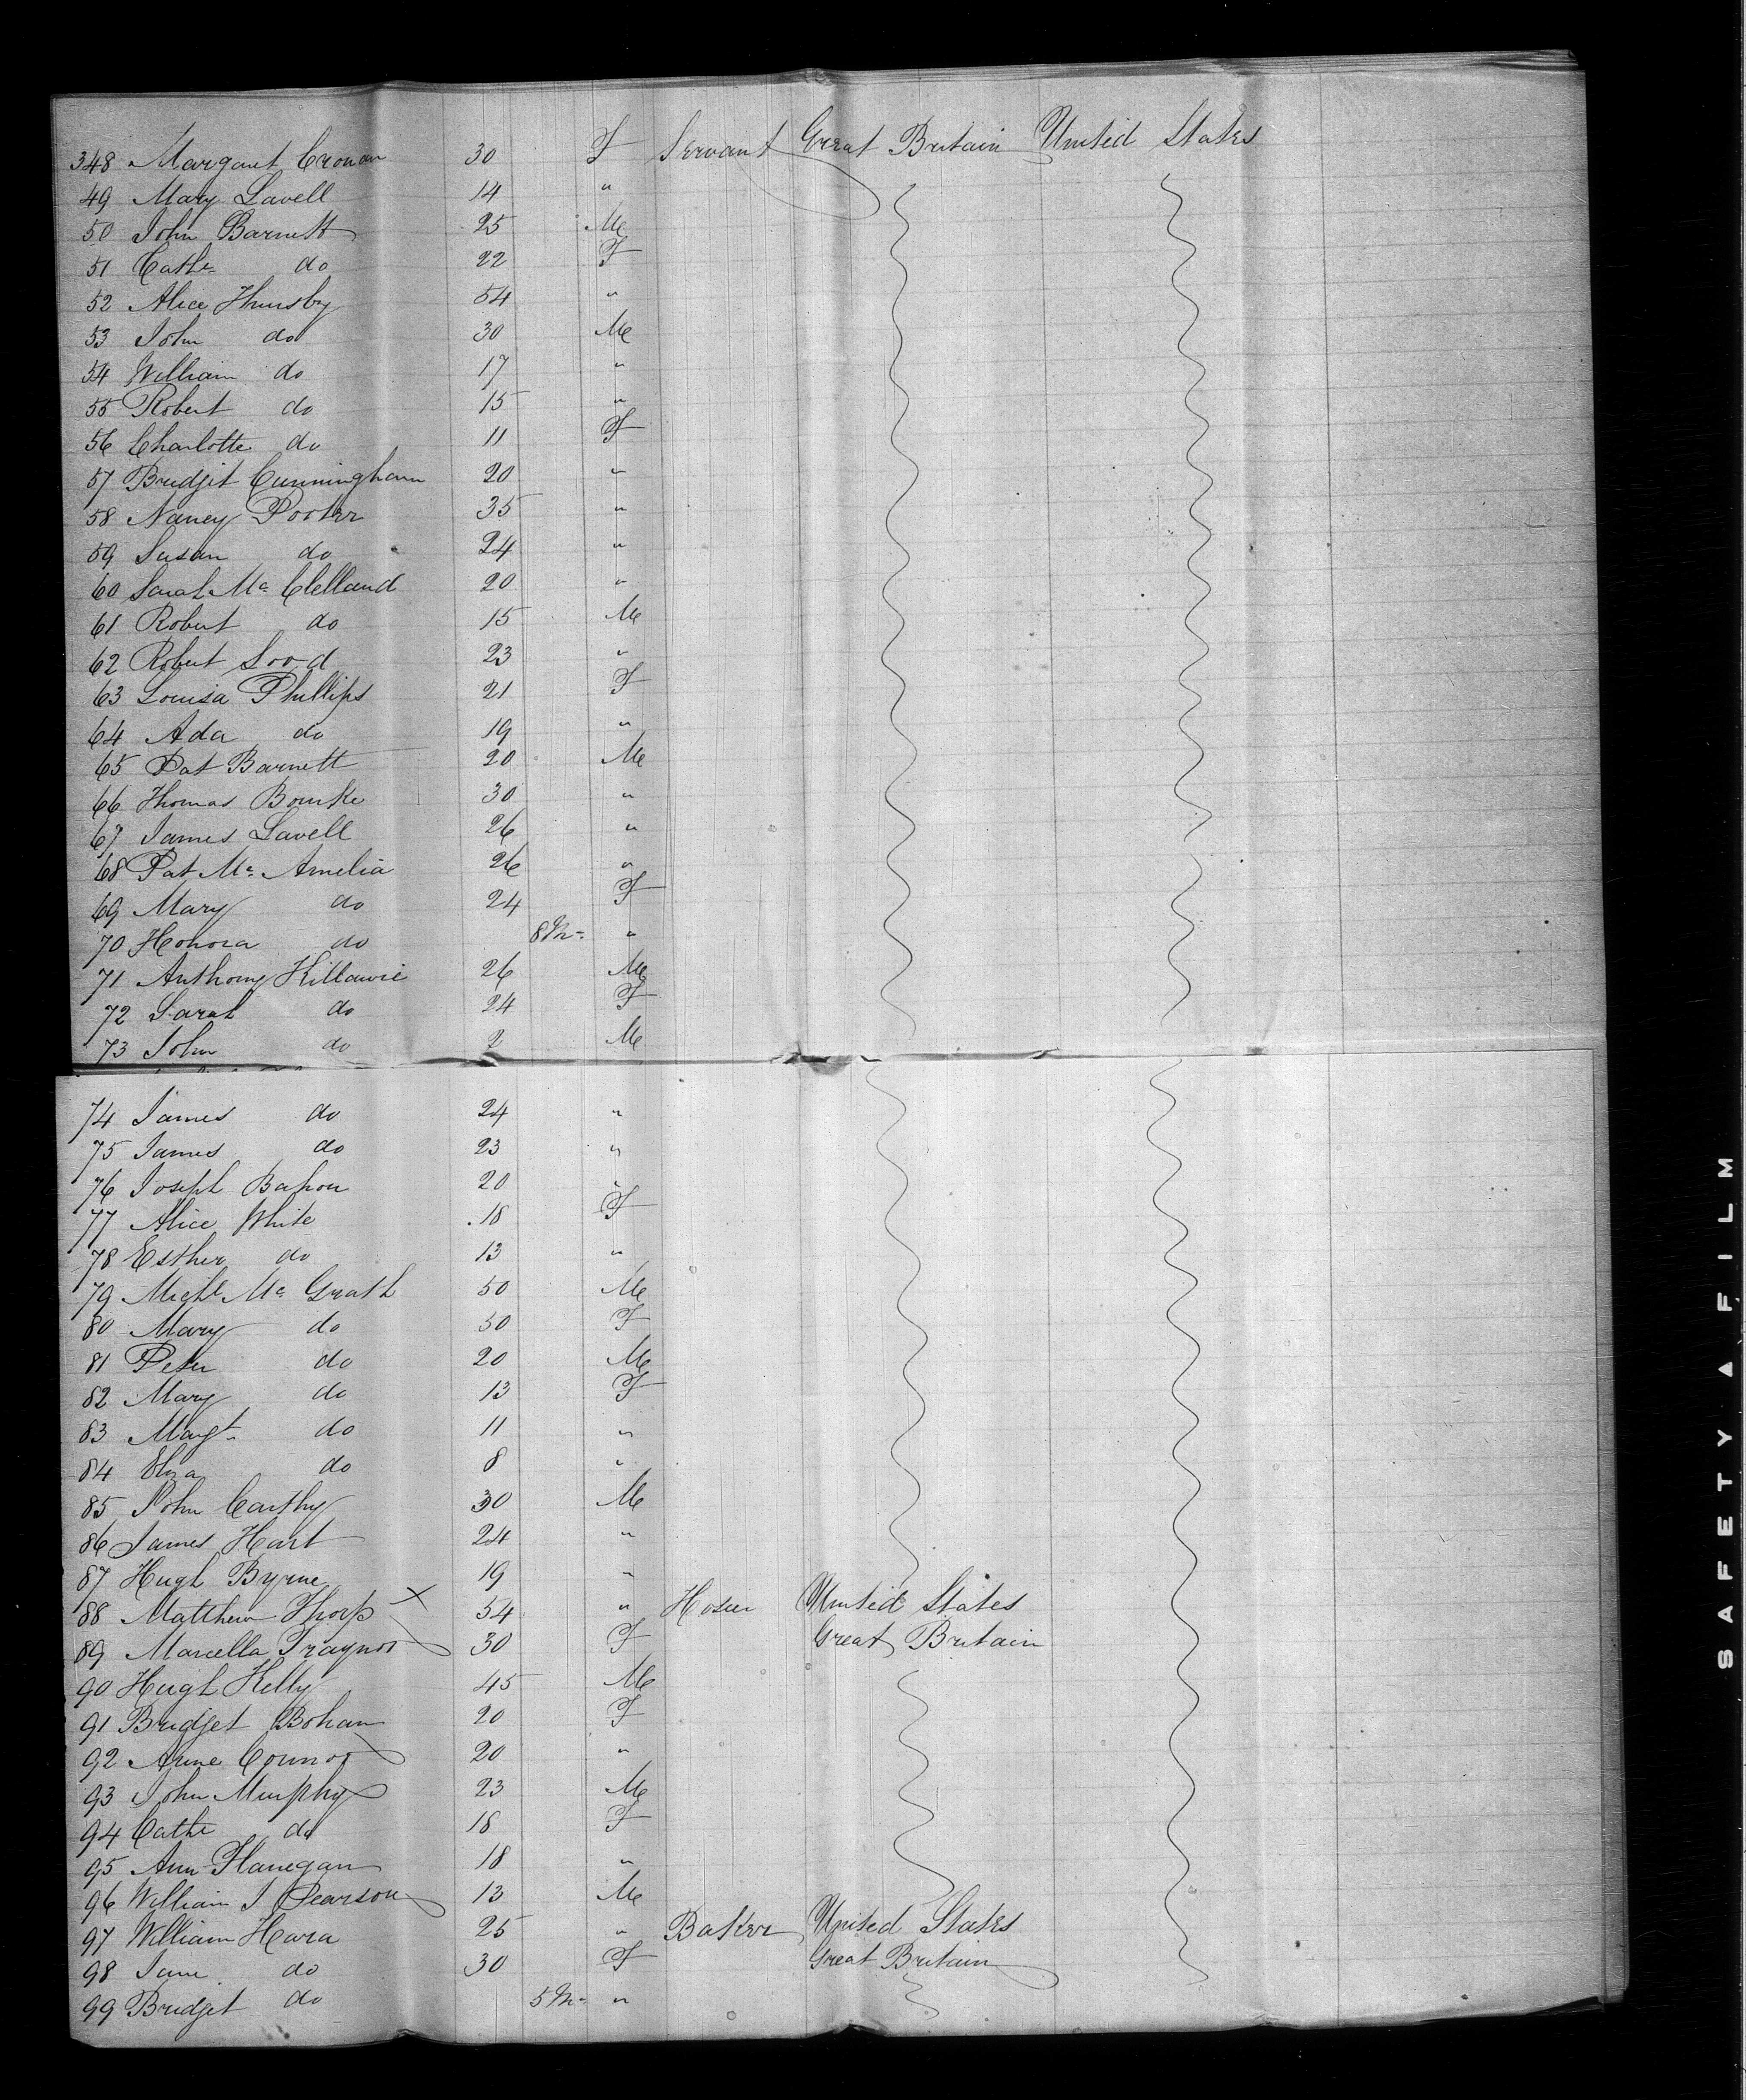 348 Margaret Cronan 30 F Servant Great Britain United States
49 Mary Lavell 14 "
50 John Barnett 25 M
51 Cathe do 22 F
52 Alice 54 "
53 John do 30 M
54 William do 17 "
55 Robert do 15 "
56 Charlotte do 11 F
57 Bridgit Cunningham 20 "
58 Nancy Porter 35 "
59 Susan do 24 "
60 Sarah Mc Clelland 20 "
61 Robert do 15 M
62 Robert 23 "
63 Louisa Phillips 21 F
64 Ada do 19 "
65 Pat Barnett 20 M
66 Thomas Bourke 30 "
67 James Lavell 26 "
68 Pat Mc Amelia 26 "
69 Mary do 24 F
70 Honora do 8 M "
71 Anthony Killawie 26 M
72 Sarah do 24 F
73 John do 2 M
74 James do 24 "
75 James do 23 "
76 Joseph 20 "
77 Alice White 18 F
78 Esther do 13 "
79 Michl Mc Grath 50 M
80 Mary do 50 F
81 Peter do 20 M
82 Mary do 13 F
83 Margt do 11 "
84 Eliza do 8 "
85 John Carthy 30 M
86 James Hart 24 "
87 Hugh Byrne 19 "
88 Matthew Thorp X 54 " United States
89 Marcella Traynor 30 F Great Britain
90 Hugh Kelly 45 M
91 Bridget Bohan 20 F
92 Anne Connor 20 "
93 John Murphy 23 M
94 Cathe do 18 F
95 Ann Flanegan 18 "
96 William J Pearson 13 M
97 William Hara 25 " Baker United States
98 Jane do 30 F Great Britain
99 Bridget do 5 M "
SAFETY ▲ FILM